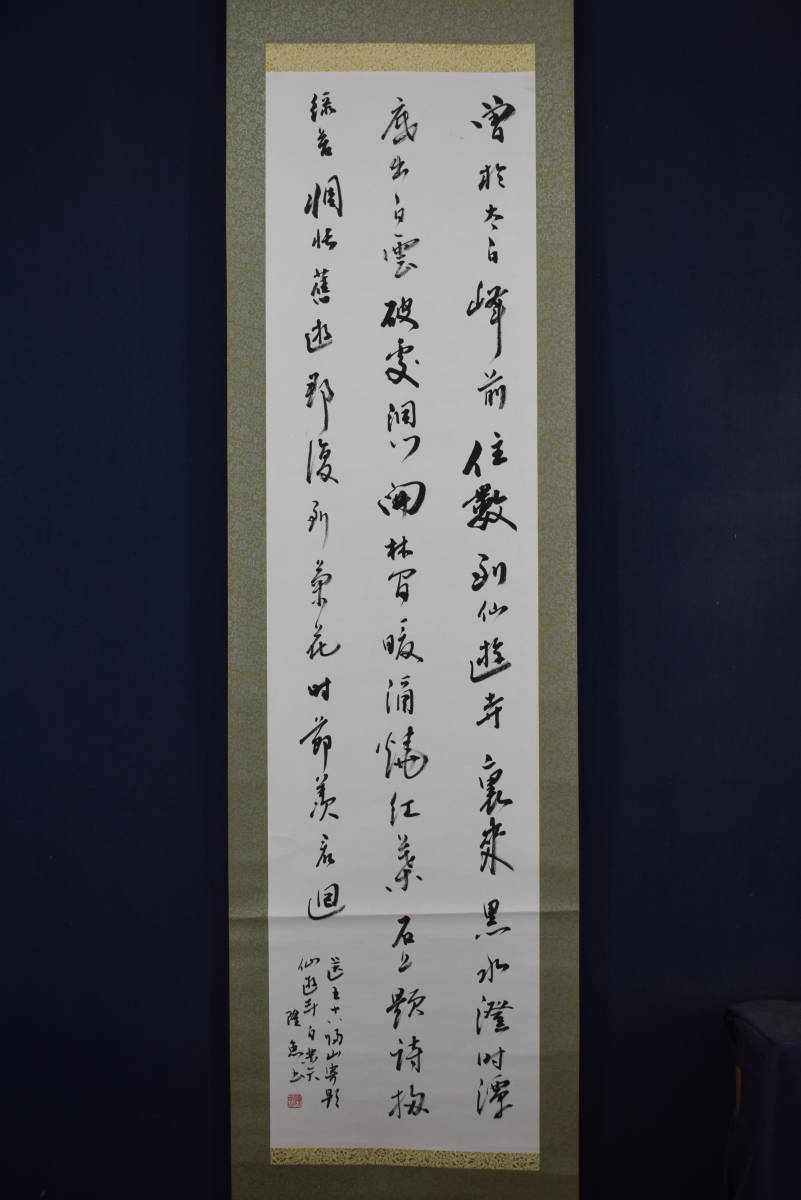 曽於太白峰前住數到仙遊寺裏來黒水澄时潭
底出白雲破處洞门開林間暖酒燒红葉石上題詩拂
緑苔惆悵舊遊那復到菊花时節羨君迴
送王十八帰山寄題
仙遊寺白樂天